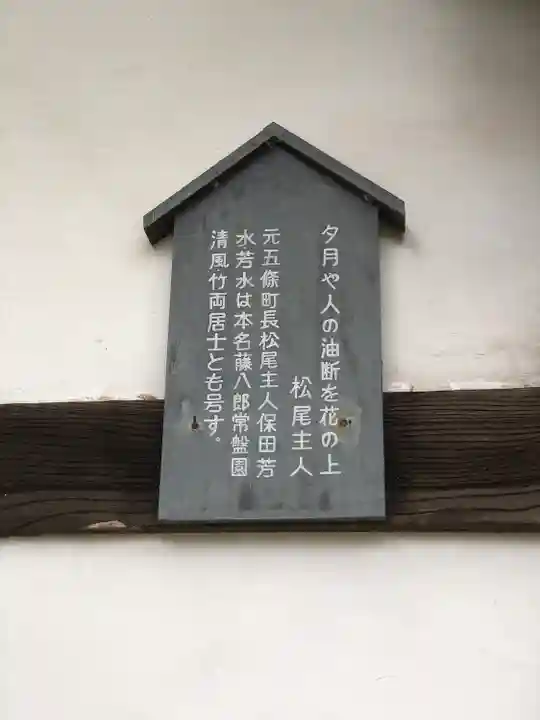 夕月や人の油断を花の上
松尾主人
元五條町長松尾主人保田芳
水芳水は本名藤八郎常盤園
清風竹両居士とも号す。